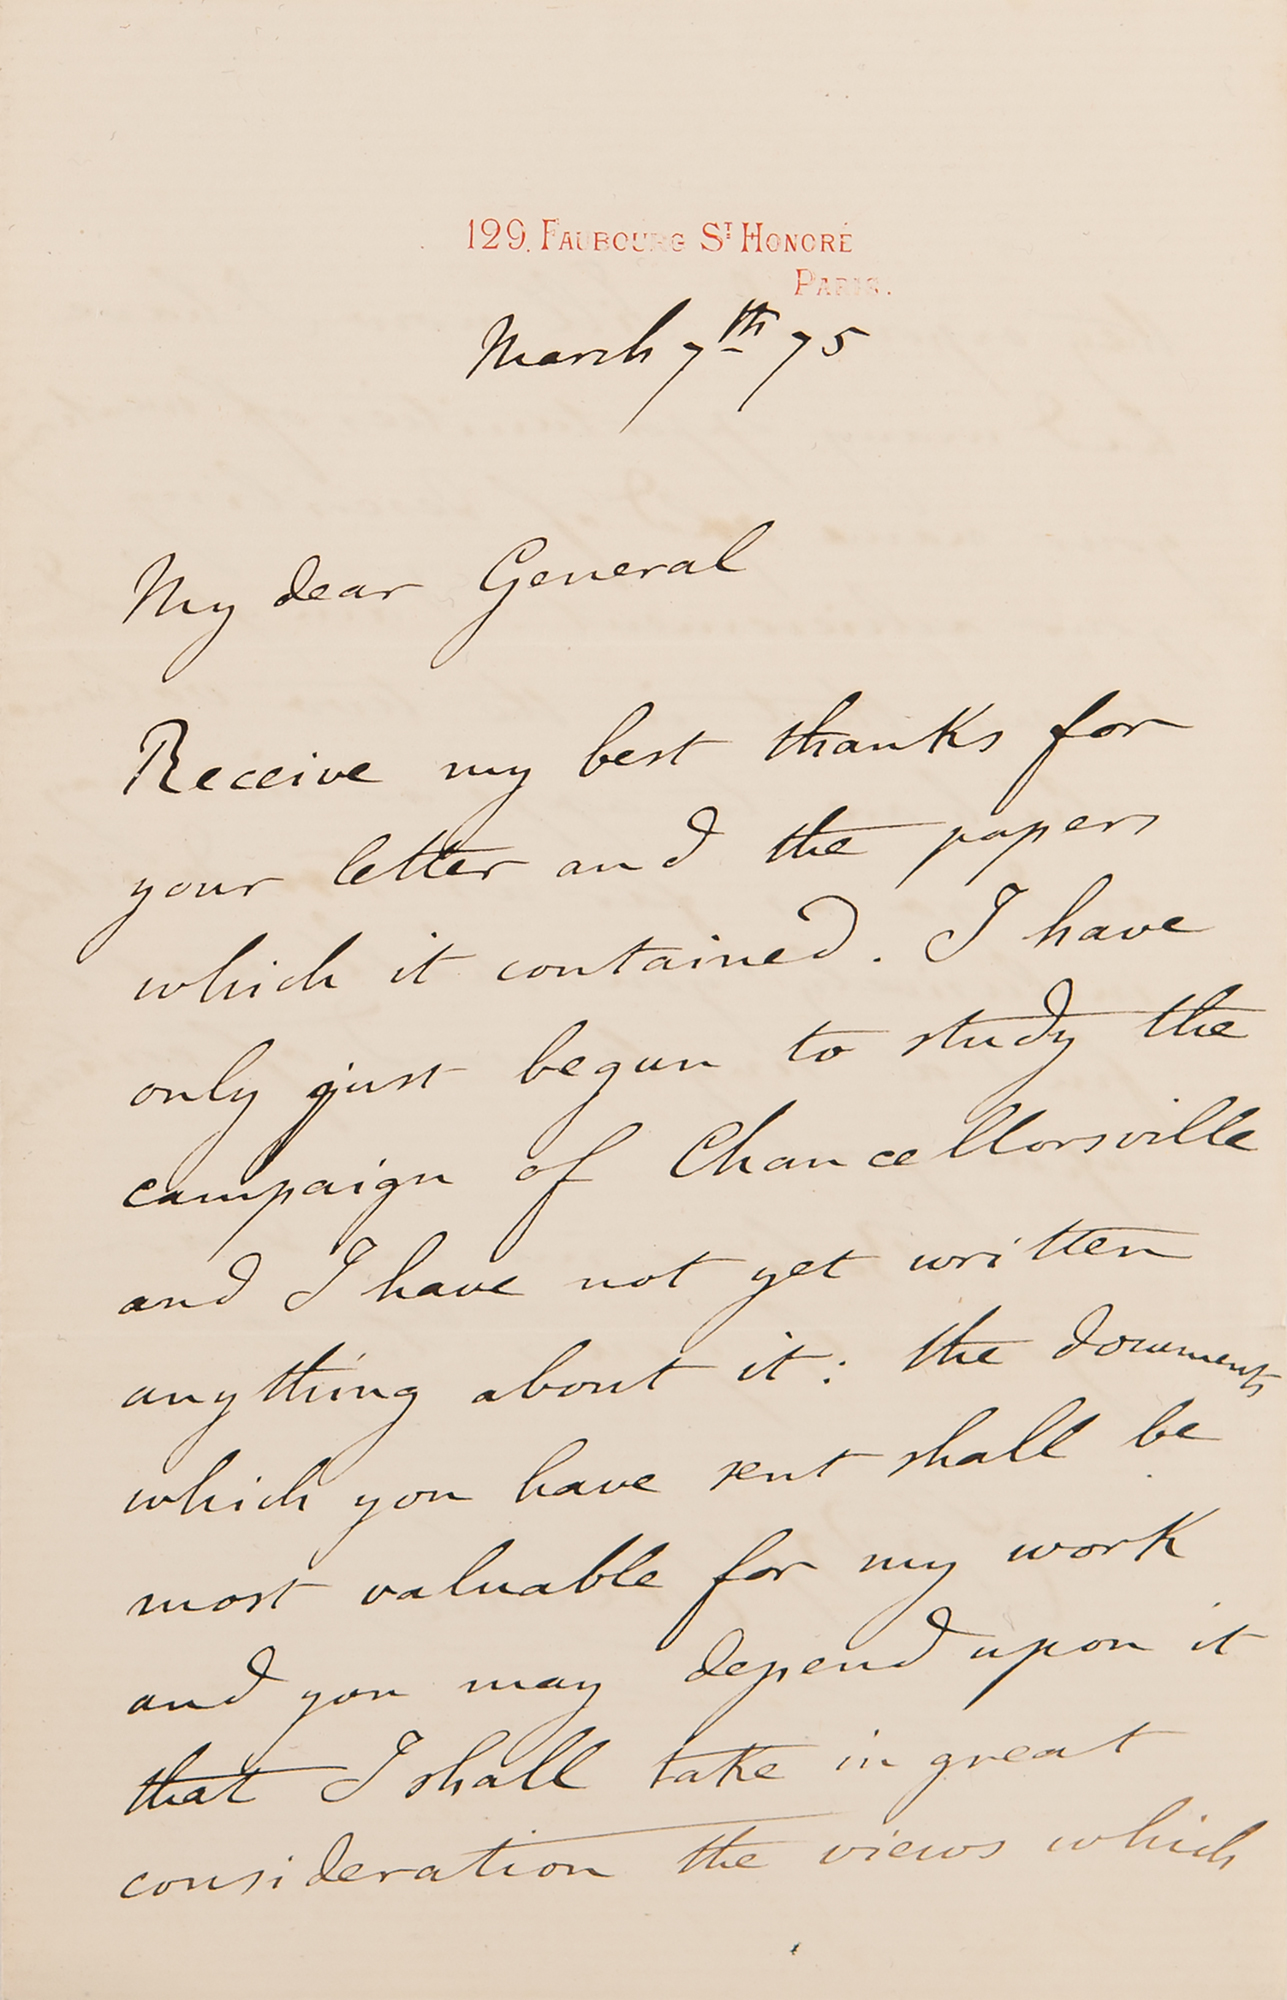 129, FAUBOURG ST HONORÉ
PARIS.
March 7th 75
My dear General
Receive my best thanks for
your letter and the papers
which it contained. I have
only just begun to study the
campaign of Chancellorsville
and I have not yet written
anything about it: the documents
which you have sent shall be
most valuable for my work
and you may depend upon it
that I shall take in great
consideration the views which